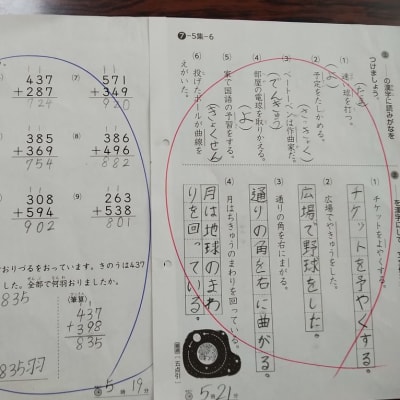 437
+287
724
(7)
571
+349
920
385
+369
754
(8)
386
+496
882
308
+594
902
(9)
263
+538
801
おりづるをおっています。きのうは437
した。全部で何羽おりましたか。
835
(筆算)
437
+398
835
835羽
5分19秒
❼-5集-6
の漢字に読みがなを
つけましょう。
① 速い球を打つ。
② 予定をたしかめる。
(よ)
③ ベートーベンは作曲家だ。
④ 部屋の電球を取りかえる。
(でんきゅう)
⑤ 家で国語の予習をする。
(よ)
⑥ 投げたボールが曲線を
えがいた。
(きょくせん)
① チケットをよやくする。
チケットを予やくする。
② 広場でやきゅうをした。
広場で野球をした。
③ 通りの角を右にまがる。
通りの角を右に曲がる。
④ 月はちきゅうのまわりを回っている。
月は地球のまわ
りを回っている。
5分21秒